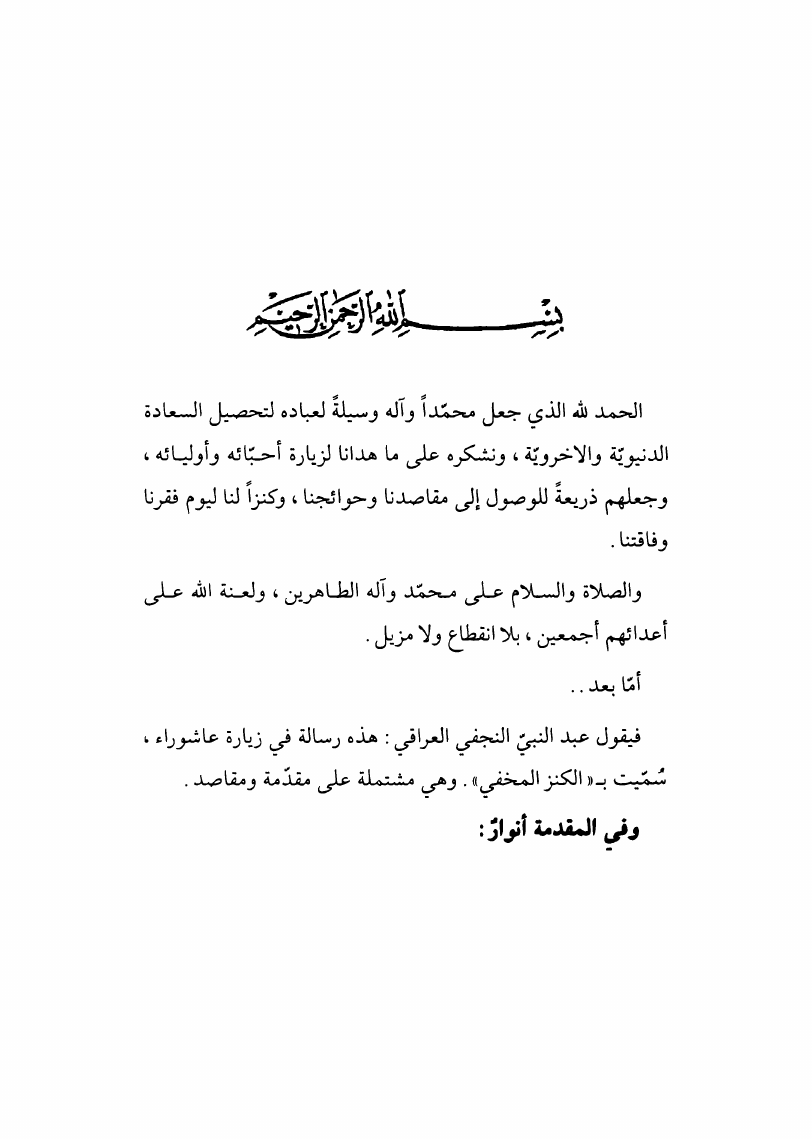 بسم الله الرحمن الرحيم
الحمد لله الذي جعل محمّداً وآله وسيلةً لعباده لتحصيل السعادة
الدنيويّة والاخرويّة ، ونشكره على ما هدانا لزيارة أحبّائه وأوليائه ،
وجعلهم ذريعةً للوصول إلى مقاصدنا وحوائجنا ، وكنزاً لنا ليوم فقرنا
وفاقتنا .
والصلاة والسلام على محمّد وآله الطاهرين ، ولعنة الله على
أعدائهم أجمعين ، بلا انقطاع ولا مزيل .
أمّا بعد . .
فيقول عبد النبيّ النجفي العراقي : هذه رسالة في زيارة عاشوراء ،
سُمّيت بـ« الكنز المخفي» . وهي مشتملة على مقدّمة ومقاصد .
وفي المقدمة أنوارٌ :